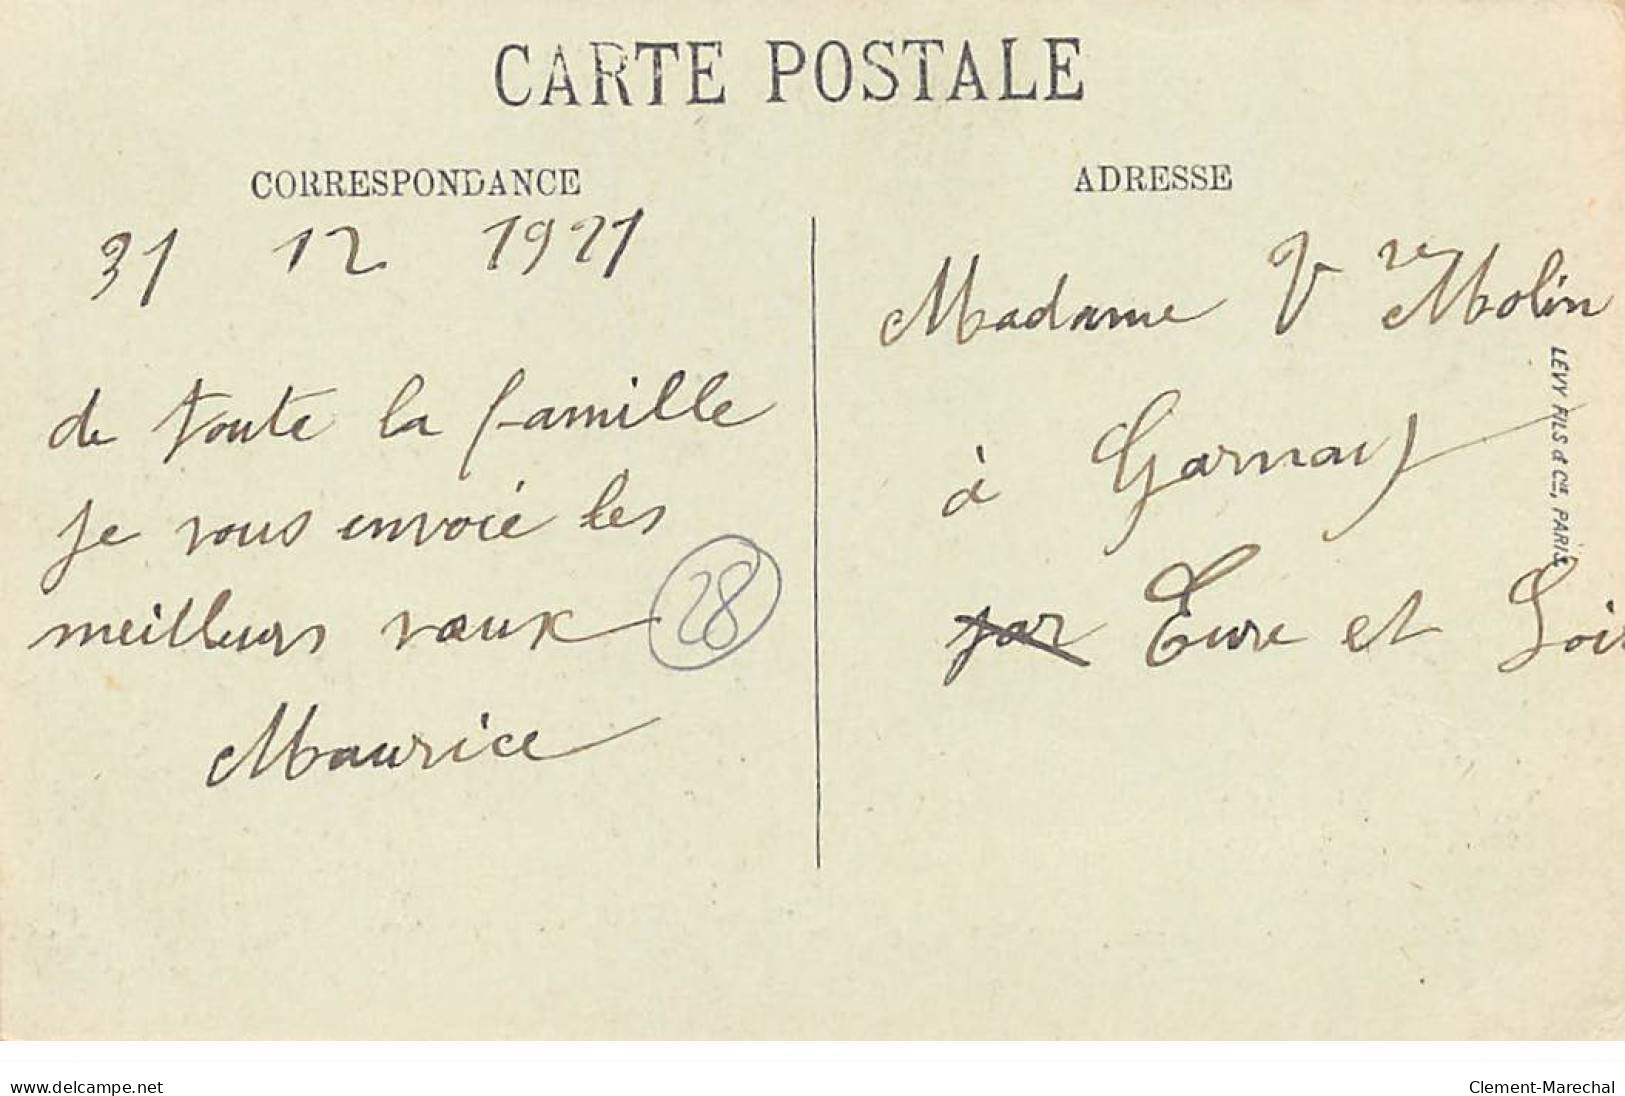 CARTE POSTALE
CORRESPONDANCE
31 12 1921
de toute la famille
je vous envoié les
meilleurs vœux
28
Maurice
ADRESSE
Madame Vve Molin
à Garnay
par Eure et Loir
LÉVY FILS & Cie, PARIS
www.delcampe.net
Clement-Marechal